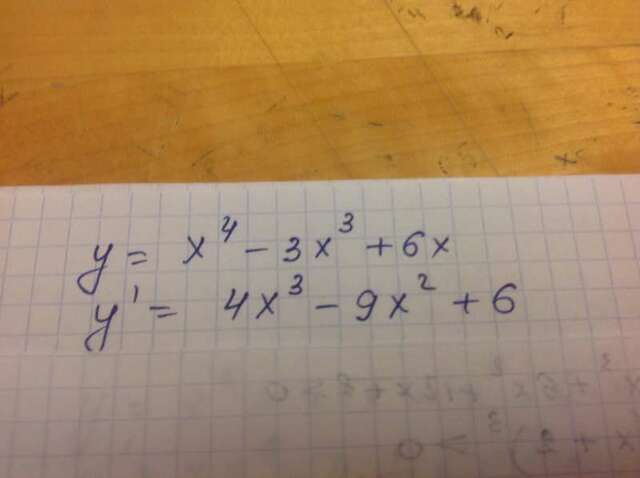 y = x⁴ - 3x³ + 6x
y' = 4x³ - 9x² + 6